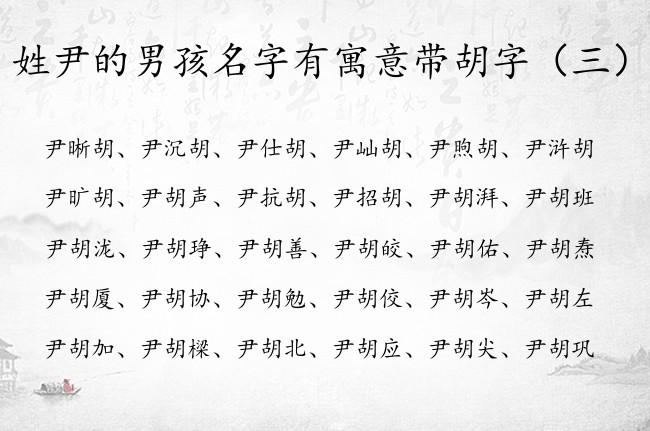 姓尹的男孩名字有寓意带胡字（三）
尹晰胡、尹沉胡、尹仕胡、尹屾胡、尹煦胡、尹浒胡
尹旷胡、尹胡声、尹抗胡、尹招胡、尹胡湃、尹胡班
尹胡泷、尹胡琤、尹胡善、尹胡皎、尹胡佑、尹胡焘
尹胡厦、尹胡协、尹胡勉、尹胡佼、尹胡岑、尹胡左
尹胡加、尹胡樑、尹胡北、尹胡应、尹胡尖、尹胡巩